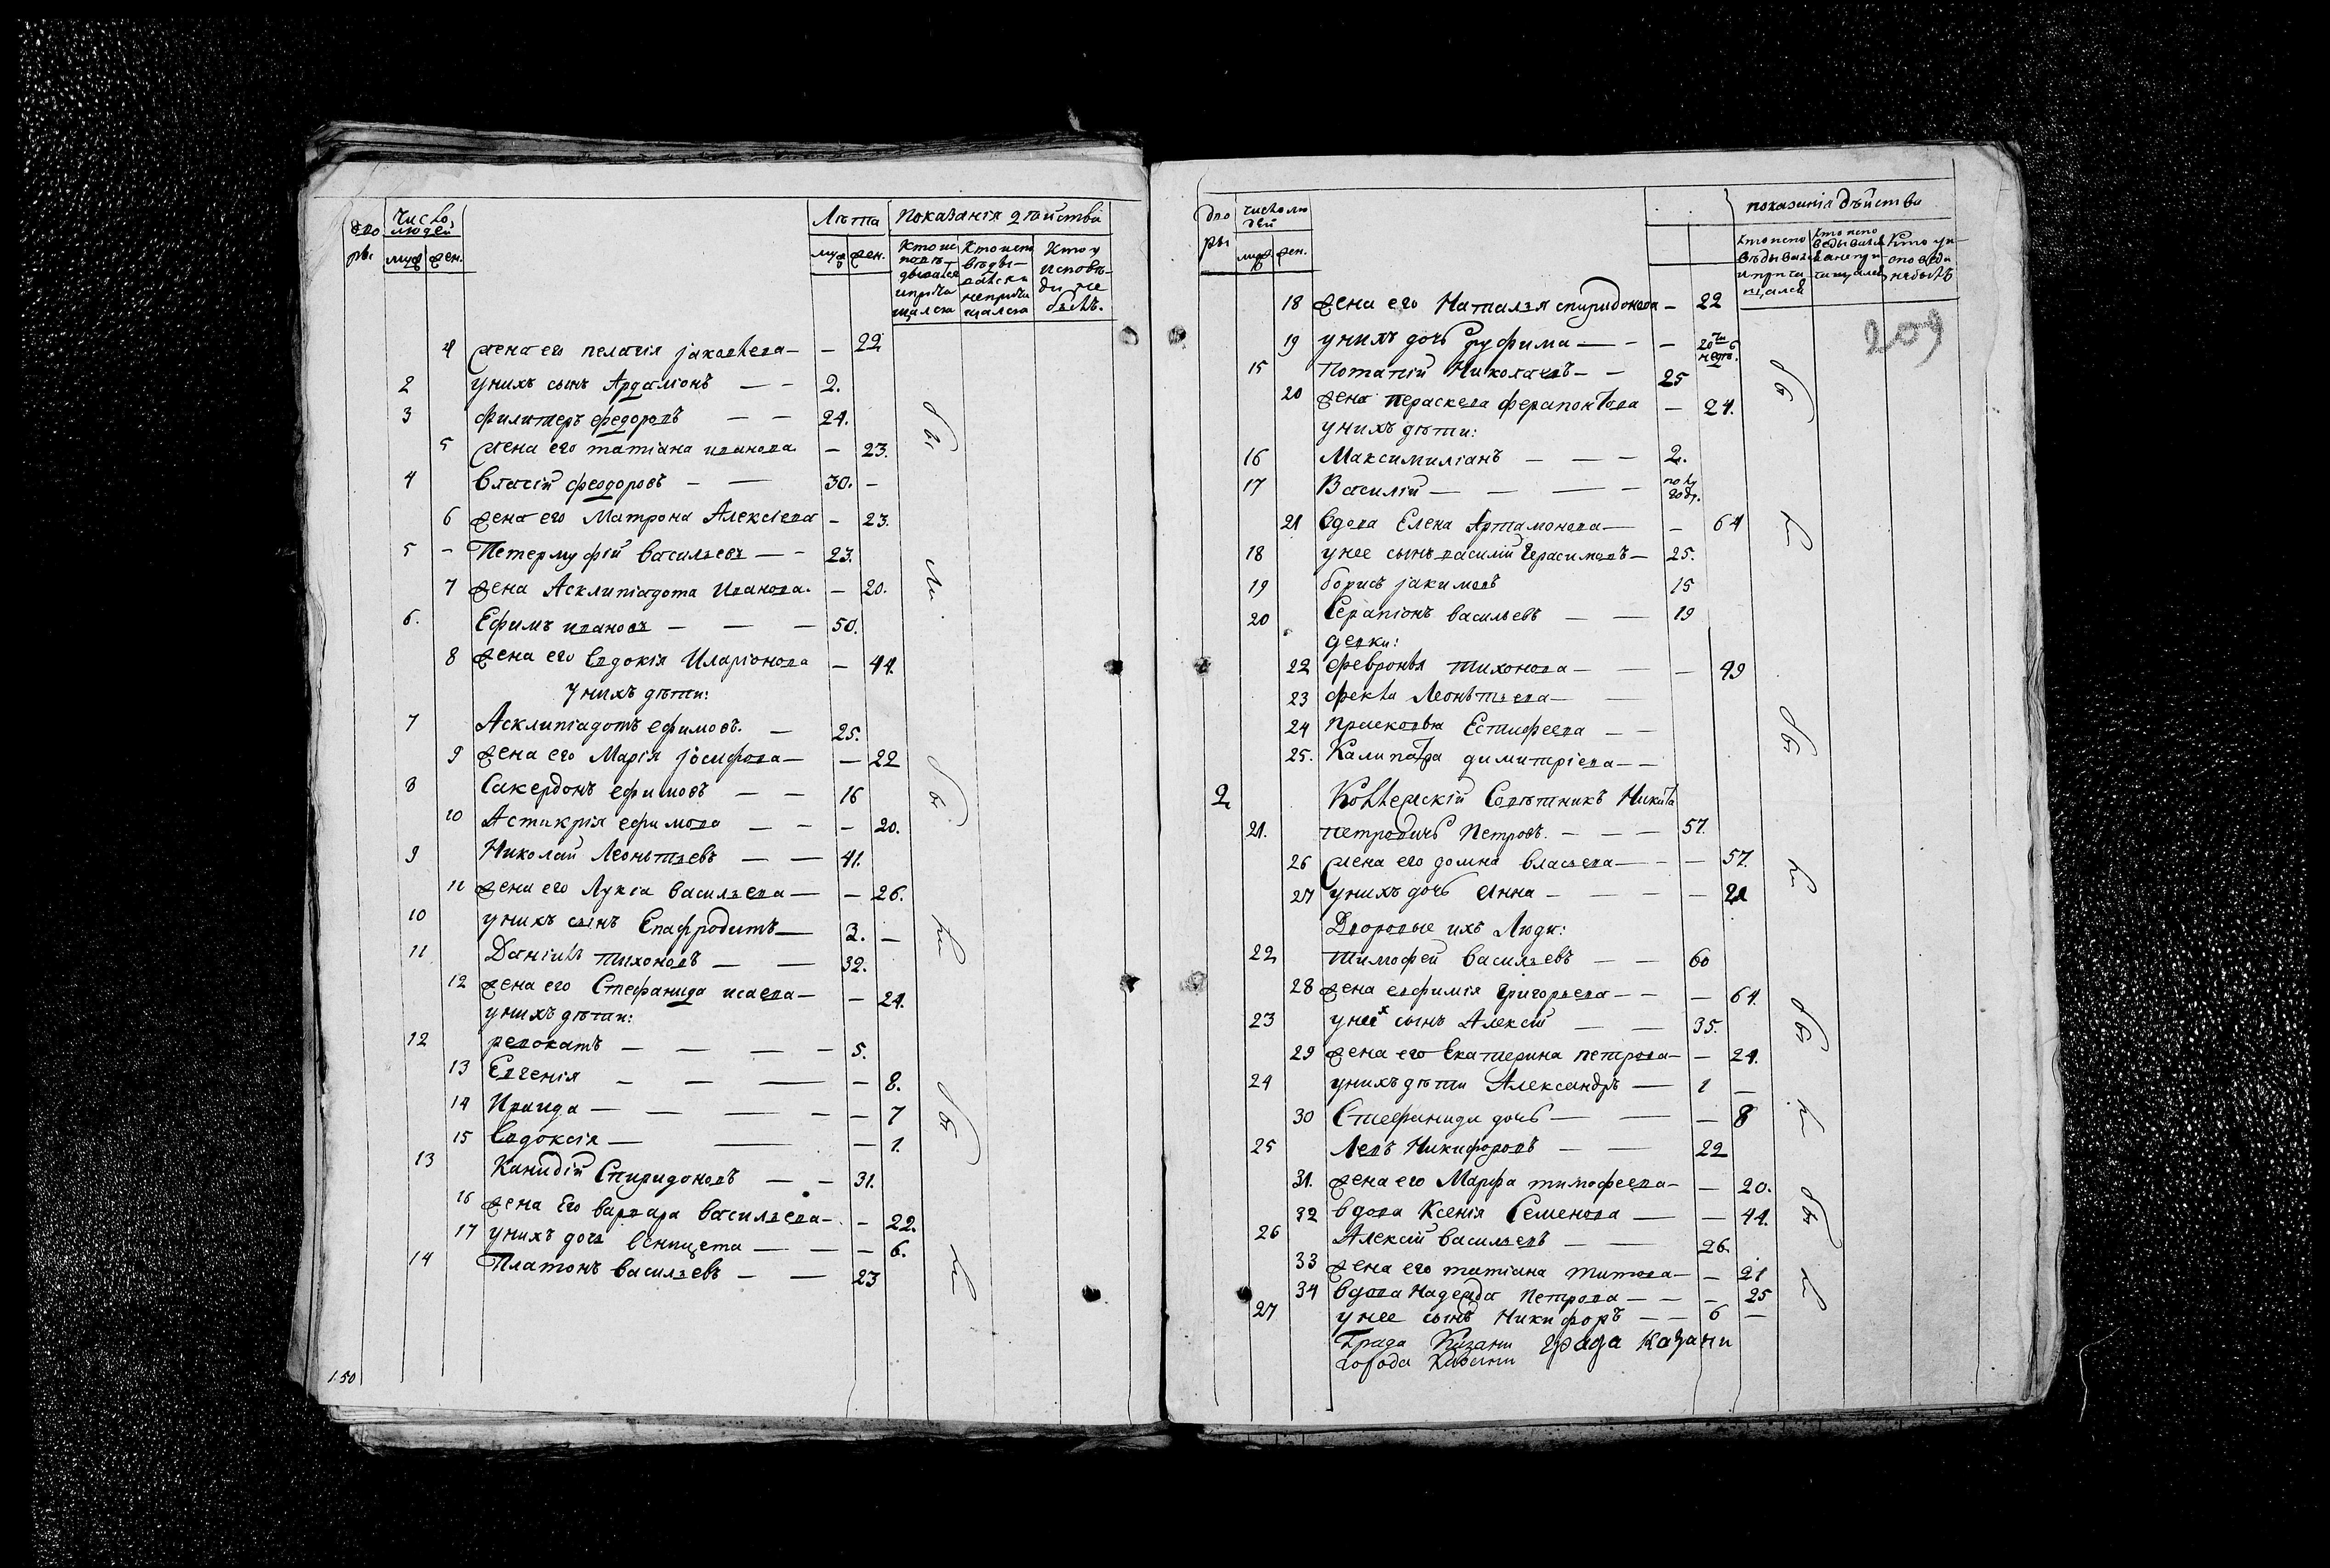 дво
ры
число
людей
муж жен.
Лѣта
муж жен.
Показанія дѣйства
Кто ис
повѣ-
дывался
и прича
щался
Кто испо
вѣды-
вался
не прича
щался
Кто у
исповѣ-
ди не
былъ.
4 жена его пелагія јаковлева — — 22
2 у нихъ сынъ Ардаліонъ — — 2.
3 филитеръ федоровъ — — 24.
5 жена его татіана иванова — 23.
4 власій феодоровъ — — 30. —
6 жена его Матрона Алексіева — 23.
5 — Петермуфій васильевъ — — 23.
7 жена Асклипіадота Иванова. — 20.
6. Ефимъ ивановъ — — — 50.
8 жена его Евдокія Иларіонова — 44.
У нихъ дѣти:
7 Асклипіадотъ ефимовъ. — 25.
9 жена его Марія јосифова — — 22
8 Сакердонъ ефимовъ — — 16
10 Астикрія ефимова — — — 20.
9 Николай Леонтьевъ — — 41.
11 жена его Лукіа васильева — — 26.
10 у нихъ сынъ Епафродитъ — 3. —
11 Даніилъ тихоновъ — — 32.
12 жена его Стефанида исаева — — 24.
у нихъ дѣти:
12 ревокатъ — — — — 5.
13 Евгенія — — — — 8.
14 Ираида — — — — — 7
15 Евдоксія — — — 1.
13 Канидій Спиридоновъ — — 31.
16 жена Его варвара васильева — — 22.
17 у нихъ дочь — — — 6.
14 Платонъ васильевъ — — 23
бы
ли
бы
ли
бы
ли
150
дво
ры
число лю
дей
муж жен.
показанія дѣйства
кто испо
вѣдывался
и прича
щался
кто испо
ведывался
а не при
чащался
Кто у и-
споведи
не былъ
209
18 жена его Наталья спиридонова — 22
19 у нихъ дочь руфима — — — 20ти
недѣ.
15 Потапій Николаевъ — — 25
20 жена параскева ферапонтова — 24.
у нихъ дѣти:
16 Максимиліанъ — — — 2.
17 Василій — — — — полу
году.
21 вдова Елена Артамонова — — 64
18 у нее сынъ василій Герасимовъ — 25.
19 борисъ јакимовъ 15
20 Серапіонъ васильевъ — — 19
девки:
22 февронья тихонова — — — 49
23 фекла Леонтьева — —
24 прасковья Естифеева — —
25. Калипатра димитріева — —
2 Коллежскій Совѣтникъ Никита
21. петровичь Петровъ. — — — 57.
26 жена его домна власьева — — — 57.
27 у нихъ дочь Анна — — — — 21
Дворовые ихъ Люди:
22 тимофей васильевъ — — 60
28 жена евфимія григорьева — — — 64.
23 у нихъ сынъ Алексій — — 35.
29 жена его Екатерина петрова — — 24.
24 у нихъ дѣти Александръ — 1 —
30 Стефанида дочь — — — 8
25 Левъ Никифоровъ — — 22
31. жена его Марфа тимофеева — — 20.
32 вдова Ксенія Семенова — — 44.
26 Алексій васильевъ — — 26.
33 жена его татіана титова — — 21
34 вдова Надежда Петрова — — — 25
27 у нее сынъ Никифоръ — — 6 —
Града Казани града Казани
города Казани
бы
ли
бы
ли
бы
ли
бы
ли